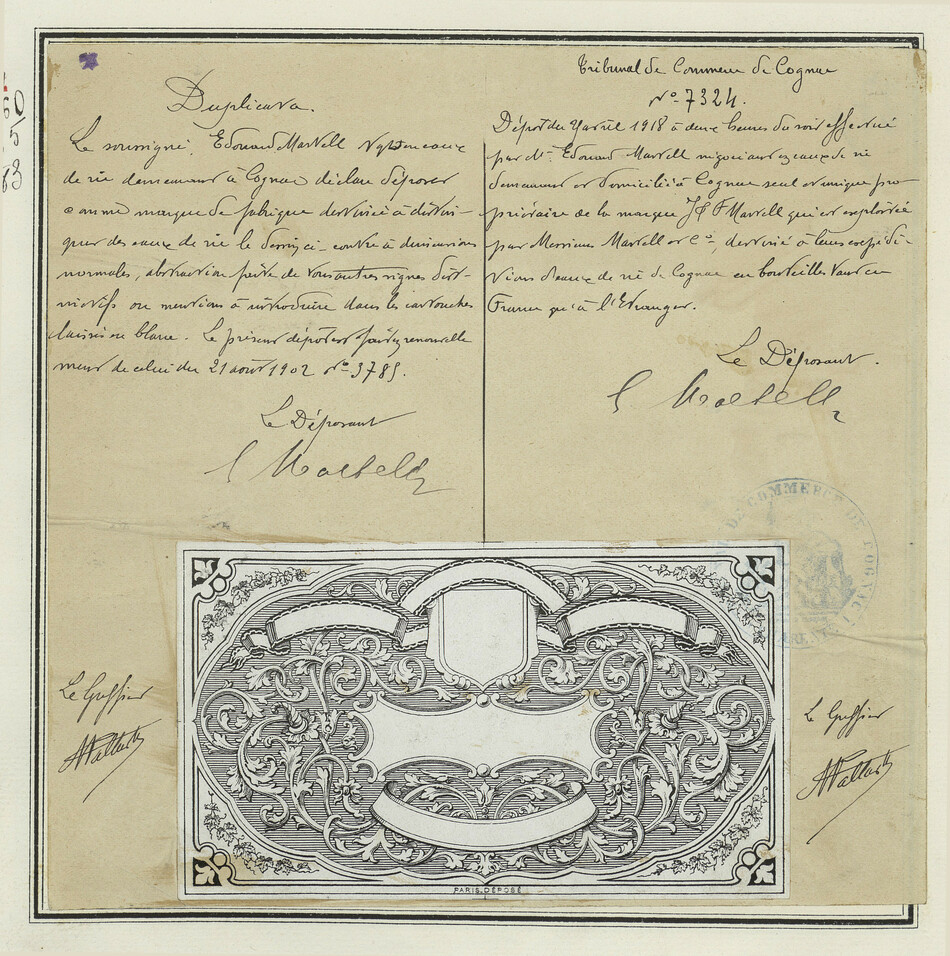 Duplicata.
Le soussigné, Edouard Martell Négt en eaux
de vie demeurant à Cognac déclare déposer
comme marque de fabrique destinée à distin-
guer des eaux de vie le dessin ci-contre à dimensions
normales, abstraction faite de tous autres signes dist-
inctifs ou mentions à introduire dans les cartouches
laissés en blanc. Le présent dépôt est fait en renouvelle
ment de celui du 21 août 1902 No 3785.
Le Déposant
E Martell
Tribunal de Commerce de Cognac
No 7324.
Dépôt du avril 1918 à deux heures du soir effectué
par Mr. Edouard Martell négociant en eaux de vie
demeurant et domicilié à Cognac seul et unique pro-
priétaire de la marque J & F Martell qui est exploitée
par Messieurs Martell et Co, destinée à leurs expédi-
tions d'eaux de vie de Cognac en bouteilles tant en
France qu'à l'Etranger.
Le Déposant.
E Martell
DE COMMERCE DE COGNAC
Le Greffier
Le Greffier
PARIS. DÉPOSÉ